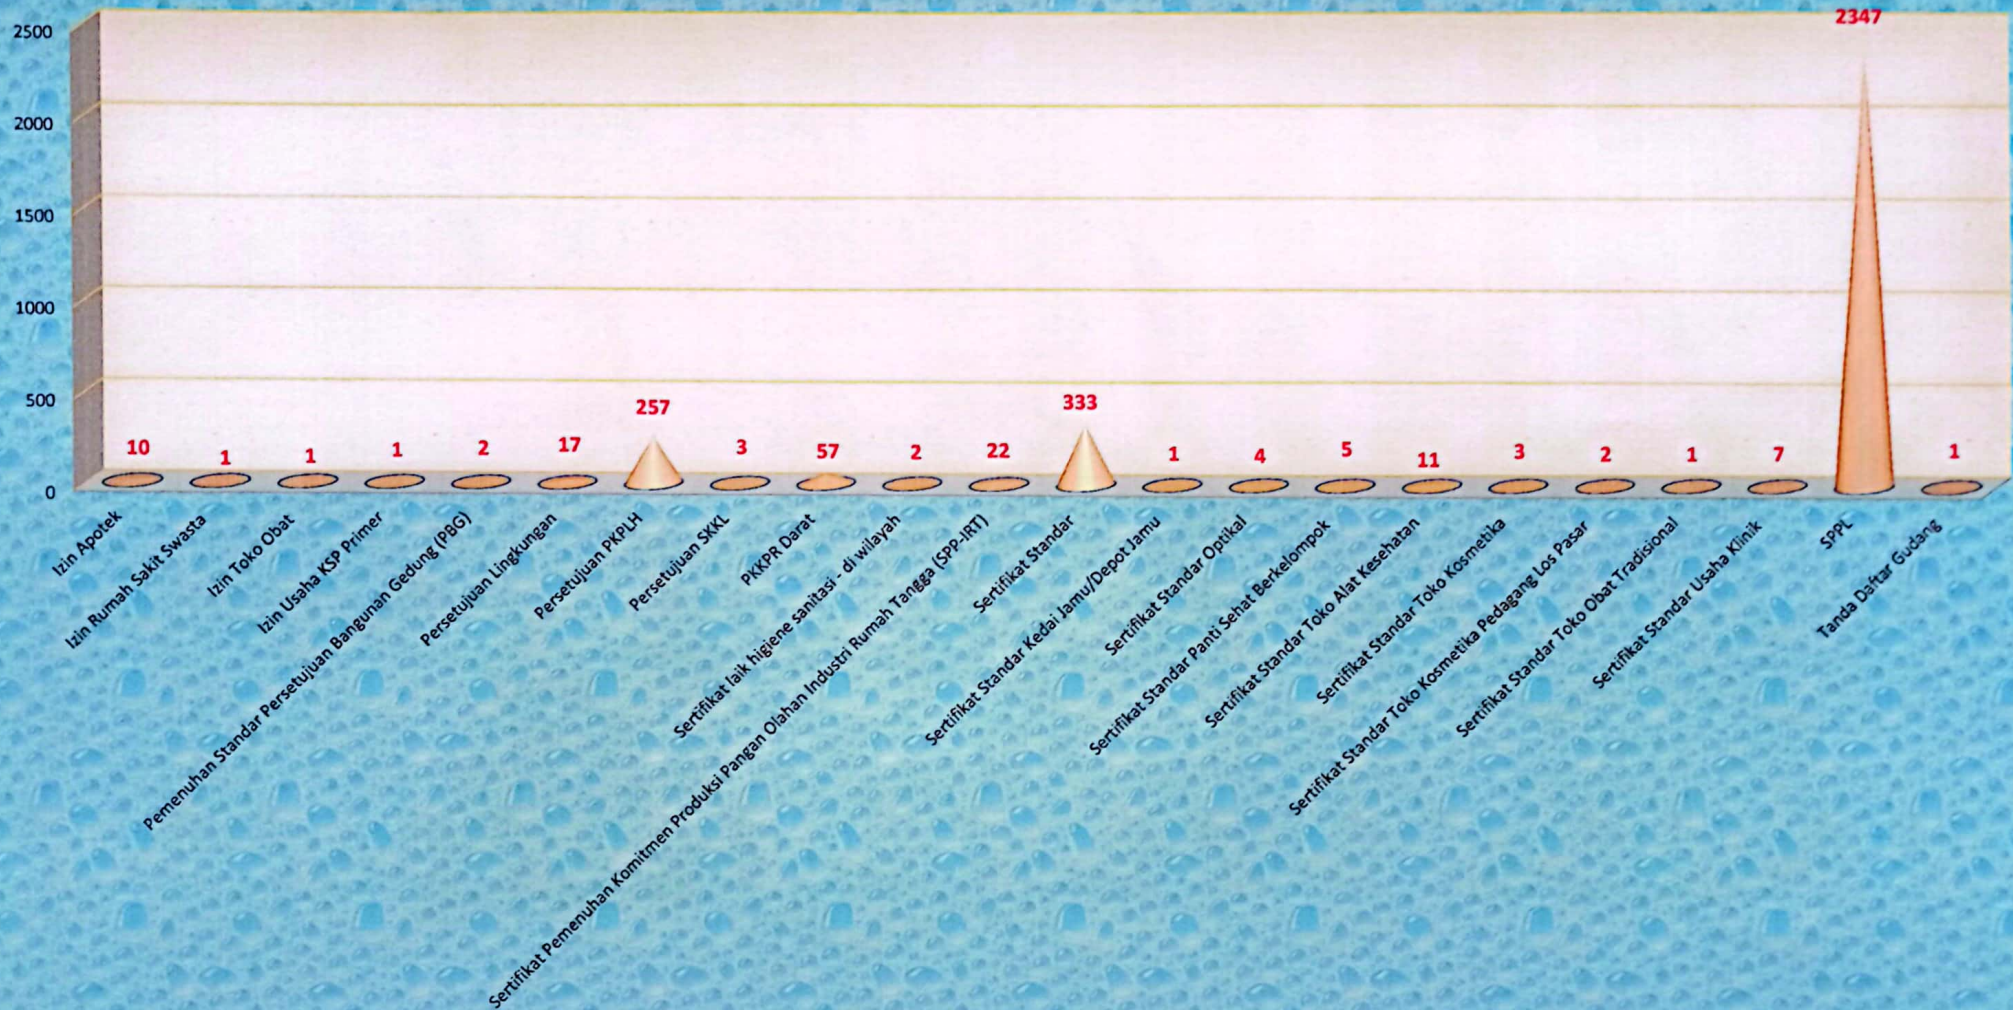 2500
2000
1500
1000
500
0
10
1
1
1
2
17
257
3
57
2
22
333
1
4
5
11
3
2
1
7
2347
1
Izin Apotek
Izin Rumah Sakit Swasta
Izin Toko Obat
Izin Usaha KSP Primer
Pemenuhan Standar Persetujuan Bangunan Gedung (PBG)
Persetujuan Lingkungan
Persetujuan PKPLH
Persetujuan SKKL
PKKPR Darat
Sertifikat laik higiene sanitasi - di wilayah
Sertifikat Pemenuhan Komitmen Produksi Pangan Olahan Industri Rumah Tangga (SPP-IRT)
Sertifikat Standar
Sertifikat Standar Kedai Jamu/Depot Jamu
Sertifikat Standar Optikal
Sertifikat Standar Panti Sehat Berkelompok
Sertifikat Standar Toko Alat Kesehatan
Sertifikat Standar Toko Kosmetika
Sertifikat Standar Toko Kosmetika Pedagang Los Pasar
Sertifikat Standar Toko Obat Tradisional
Sertifikat Standar Usaha Klinik
SPPL
Tanda Daftar Gudang